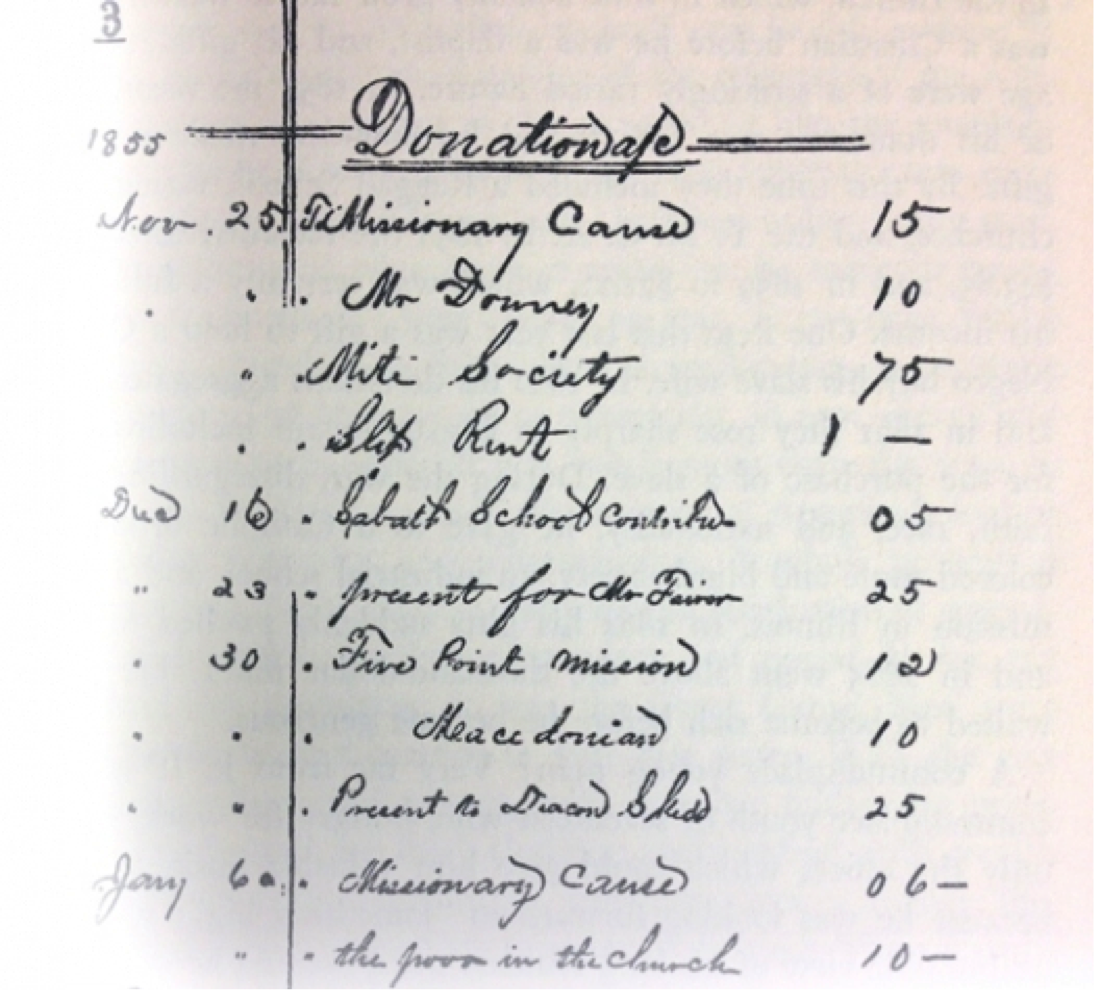 3
1855 Donation a/c
Nov. 25 To Missionary Cause 15
" " Mr Downey 10
" " Mite Society 75
" " Slip Rent 1 —
Dec 16 " Sabath School Contribu 05
" 23 " present for Mr Farrar 25
" 30 " Five Point Mission 12
" " " Macedonian 10
" " " Present to Deacon Sked 25
Jany 6 " Missionary Cause 06 —
" " the poor in the church 10 —